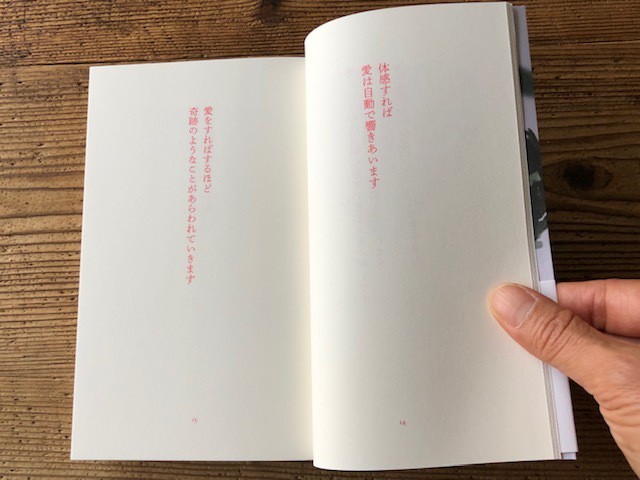 体感すれば
愛は自動で響きあいます
愛をすればするほど
奇跡のようなことがあらわれていきます